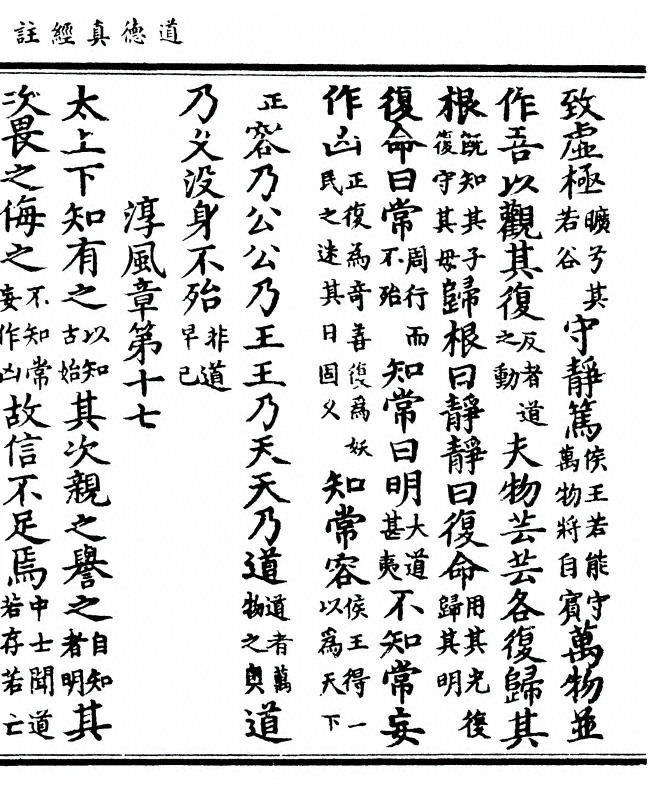 道德真經註
致虛極曠兮其若谷守靜篤侯王若能守萬物將自賓萬物並
作吾以觀其復反者道之動夫物芸芸各復歸其
根既知其子復守其母歸根曰靜靜曰復命用其光復歸其明
復命曰常周行而不殆知常曰明大道甚夷不知常妄
作凶正復為奇善復為妖民之迷其日固乆知常容侯王得一以為天下
正容乃公公乃王王乃天天乃道道者萬物之奧道
乃乆没身不殆非道早已
淳風章第十七
太上下知有之以知古始其次親之譽之自知者明其
次畏之侮之不知常妄作凶故信不足焉中士聞道若存若亡